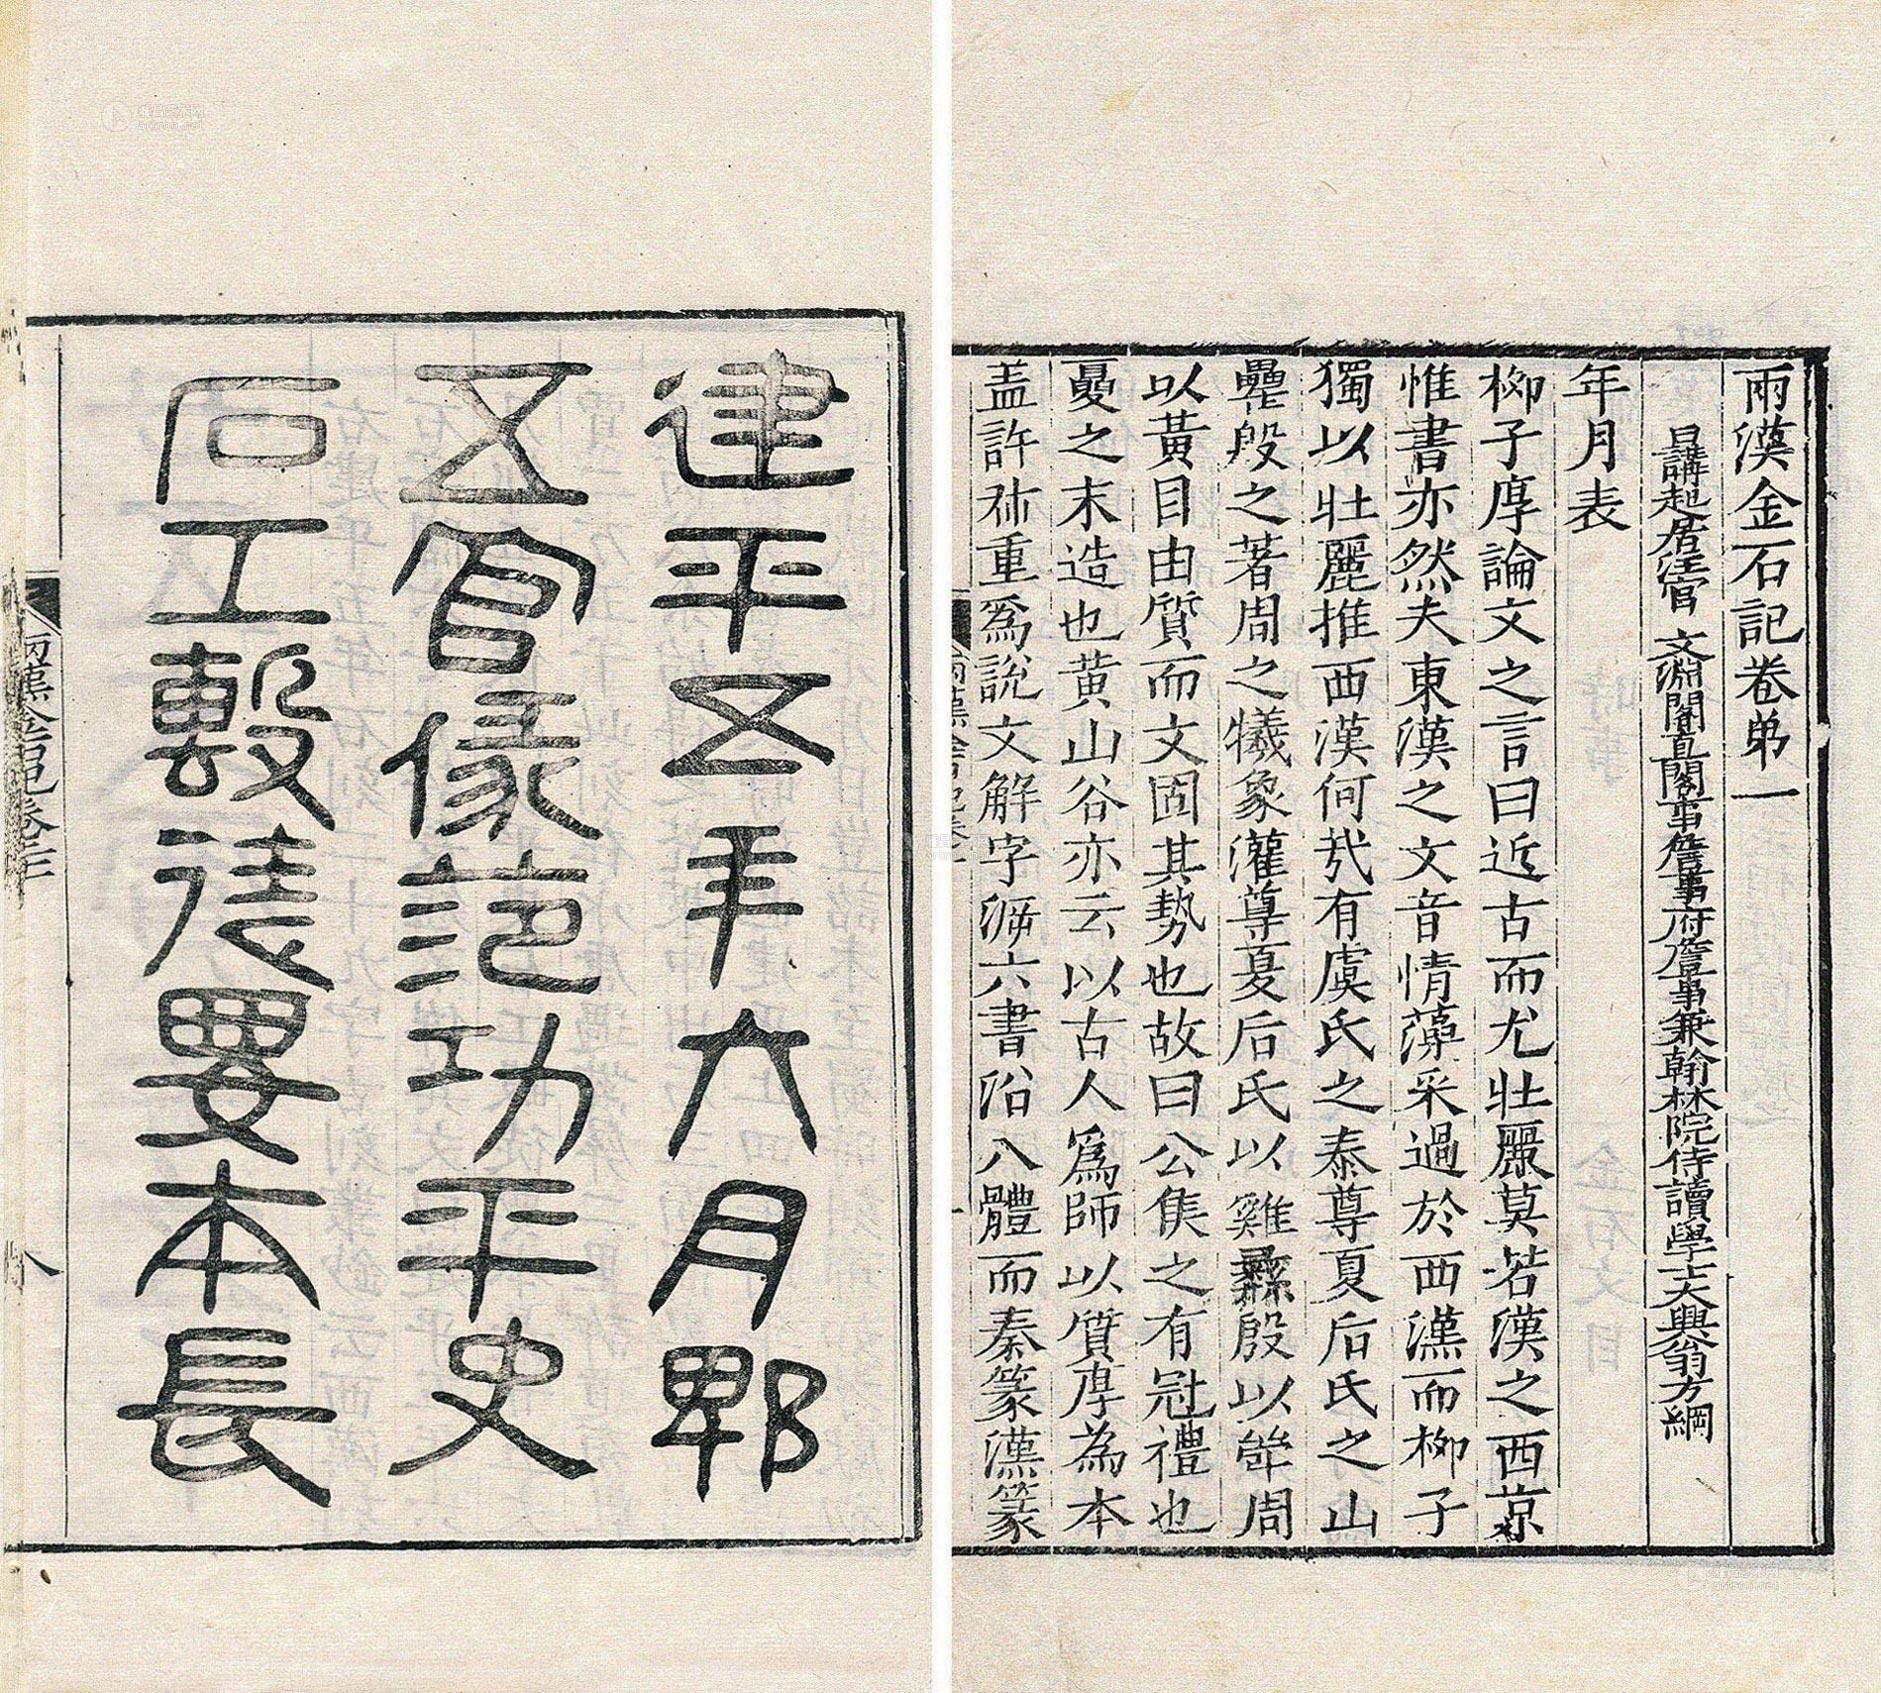 兩漢金石記卷弟一
日講起居注官文淵閣直閣事詹事府詹事兼翰林院侍讀學士大興翁方綱
年月表
柳子厚論文之言曰近古而尤壯麗莫若漢之西京
惟書亦然夫東漢之文音情藻采過於西漢而柳子
獨以壯麗推西漢何㢤有虞氏之泰尊夏后氏之山
罍殷之著周之犧象灌尊夏后氏以雞彝殷以斝周
以黃目由質而文固其勢也故曰公侯之有冠禮也
夏之末造也黄山谷亦云以古人為師以質厚為本
盖許祭重爲說文解字㴑六書沿八體而秦篆漢篆
建平五年六月郫
五官掾范功平史
石工㱾徒要本長
兩漢金石記卷十二
八